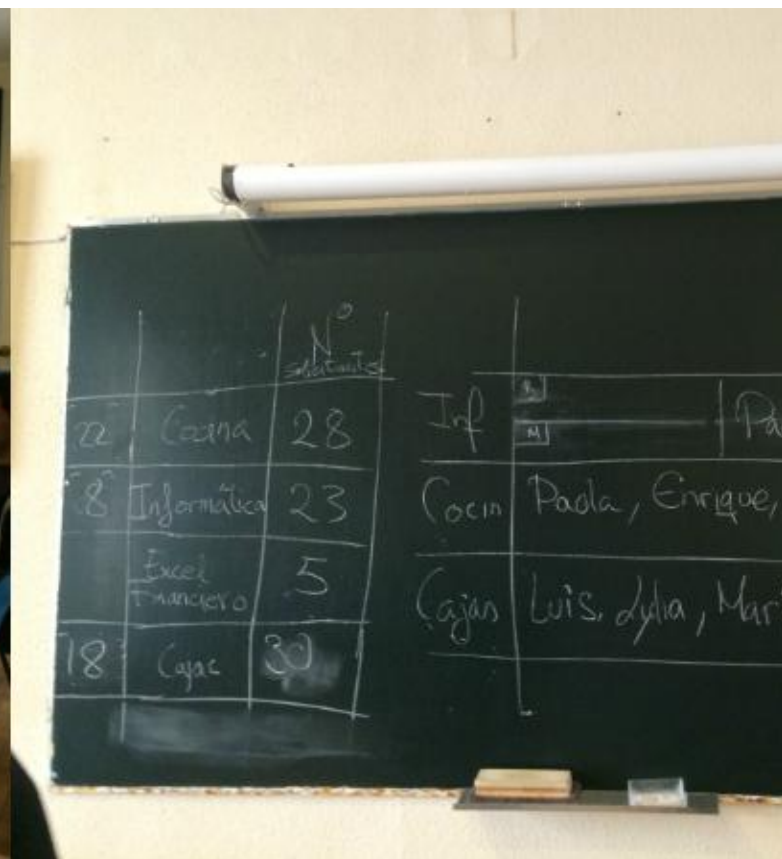 Nº
solicitantes
22 Cocina 28
8 Informática 23
Excel
Financiero 5
18 Cajas 30
Inf
M Pa
Cocin Paola, Enrique,
Cajas Luis, Lylia, Mar